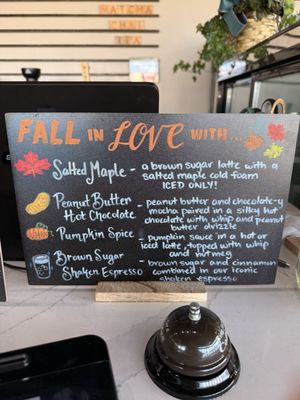 MATCHA
CHAI
TEA
FALL IN LOVE WITH...
Salted Maple - a brown sugar latte with a
salted maple cold foam
ICED ONLY!
Peanut Butter - peanut butter and chocolate-y
Hot Chocolate mocha paired in a silky hot
chocolate with whip and peanut
butter drizzle
Pumpkin Spice - pumpkin sauce in a hot or
iced latte, topped with whip
and nutmeg
Brown Sugar - brown sugar and cinnamon
Shaken Espresso combined in our iconic
shaken espresso